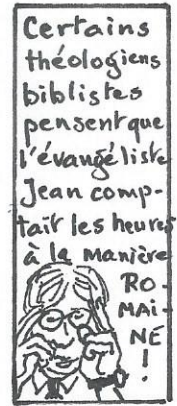 Certains
théologiens
biblistes
pensent que
l'évangéliste
Jean comp-
tait les heures
à la manière
RO-
MAI-
NE
!